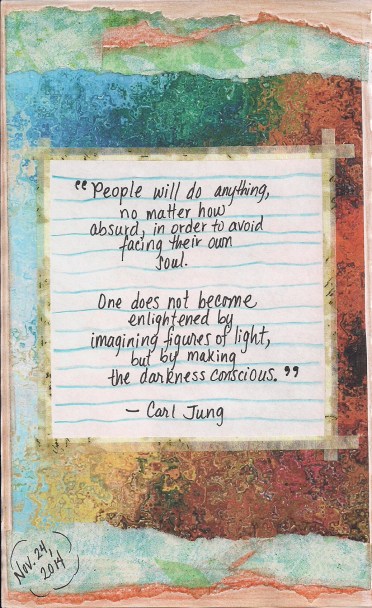 “People will do anything,
no matter how
absurd, in order to avoid
facing their own
soul.
One does not become
enlightened by
imagining figures of light,
but by making
the darkness conscious.”
– Carl Jung
Nov. 24,
2014